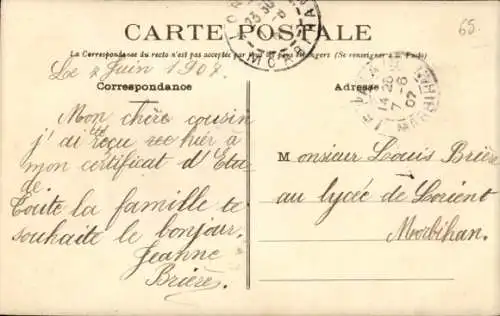 65.
CARTE POSTALE
La Correspondance du recto n'est pas acceptée par tous les pays étrangers (Se renseigner à la Poste)
Le 7 Juin 1907
Correspondance
Adresse
Mon chère cousin
j'ai été reçu hier à
mon certificat d'Etu
de.
Toute la famille te
souhaite le bonjour.
Jeanne
Brière.
Monsieur Louis Brière
au lycée de Lorient
Morbihan.
14 20
7 -6
07